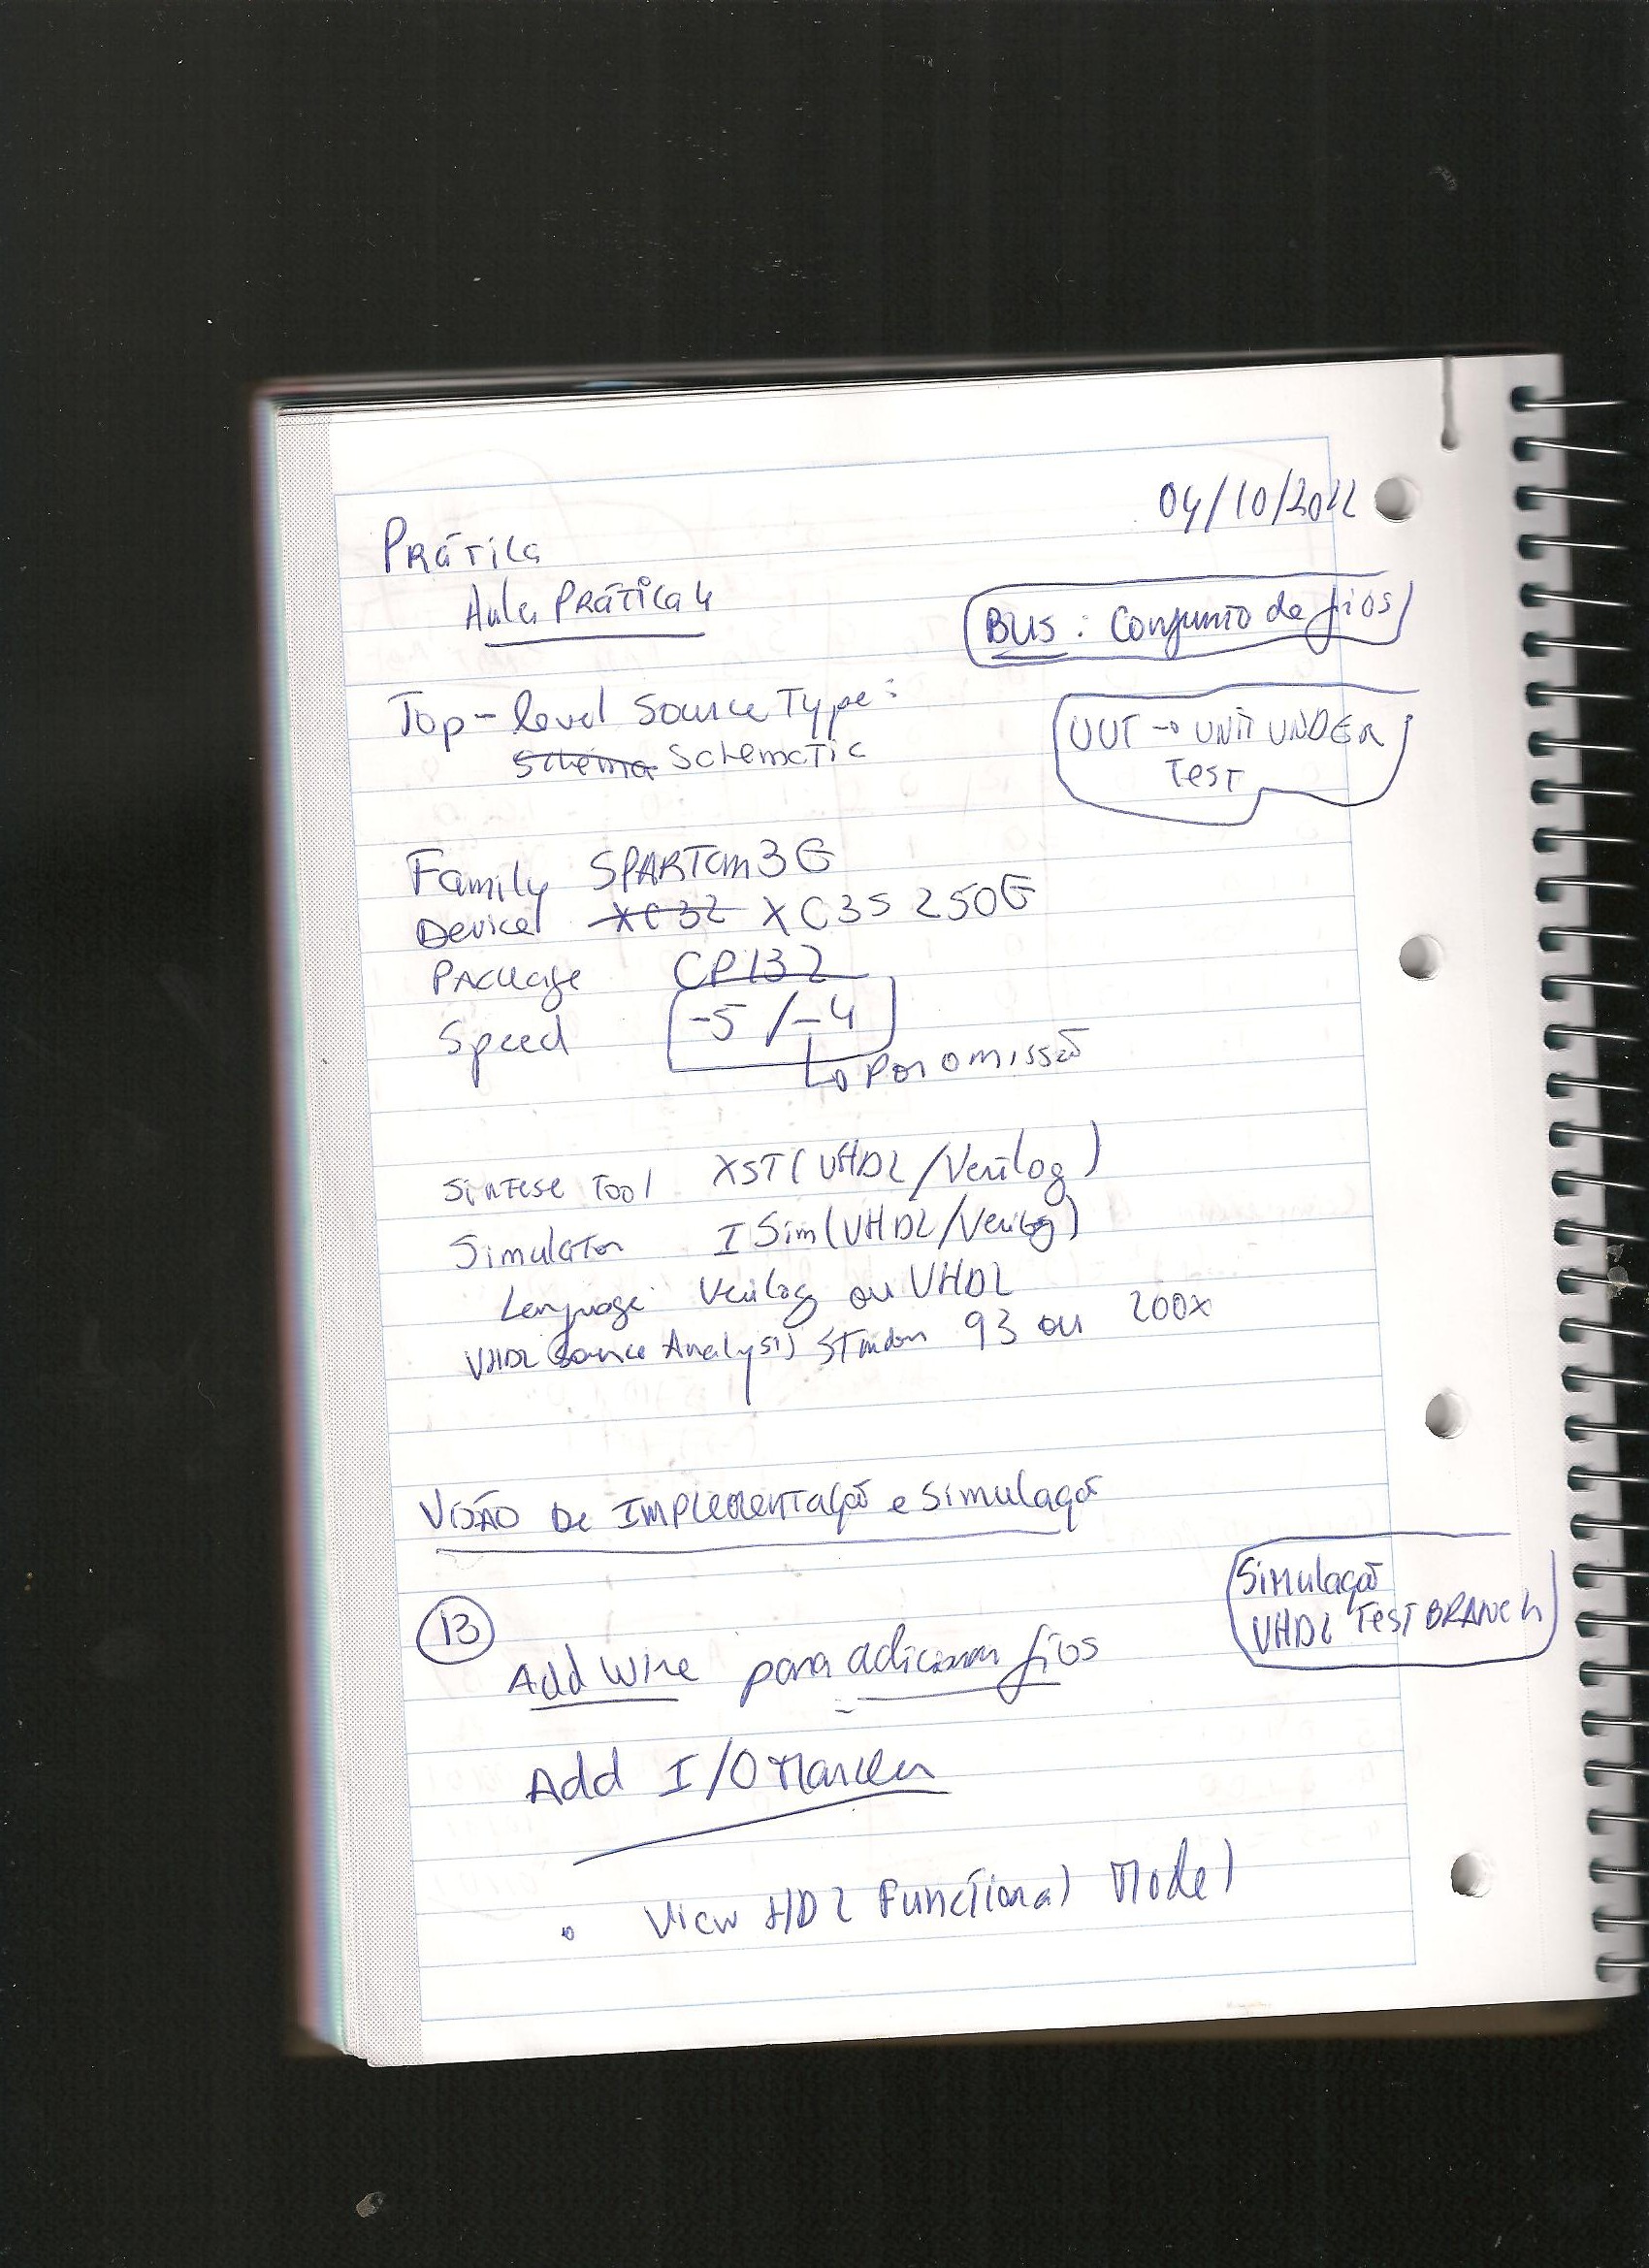 04/10/2022
Prática
Aula Prática 4
BUS : Conjunto de fios
Top-level Source Type :
Schema Schematic
UUT → UNIT UNDER
TEST
Family SPARTan3E
Device XC32 XC3S 250E
Package CP132
Speed -5 / -4
↳ Por omissão
Sintese Tool XST (VHDL/Verilog)
Simulator ISim (VHDL/Verilog)
Language Verilog ou VHDL
VHDL Source Analysis 93 ou 200x
VISÃO De Implementação e Simulação
Simulação
VHDL TEST BRANCH
13
Add Wire para adicionar fios
Add I/O Marker
• View HDL Functional Model